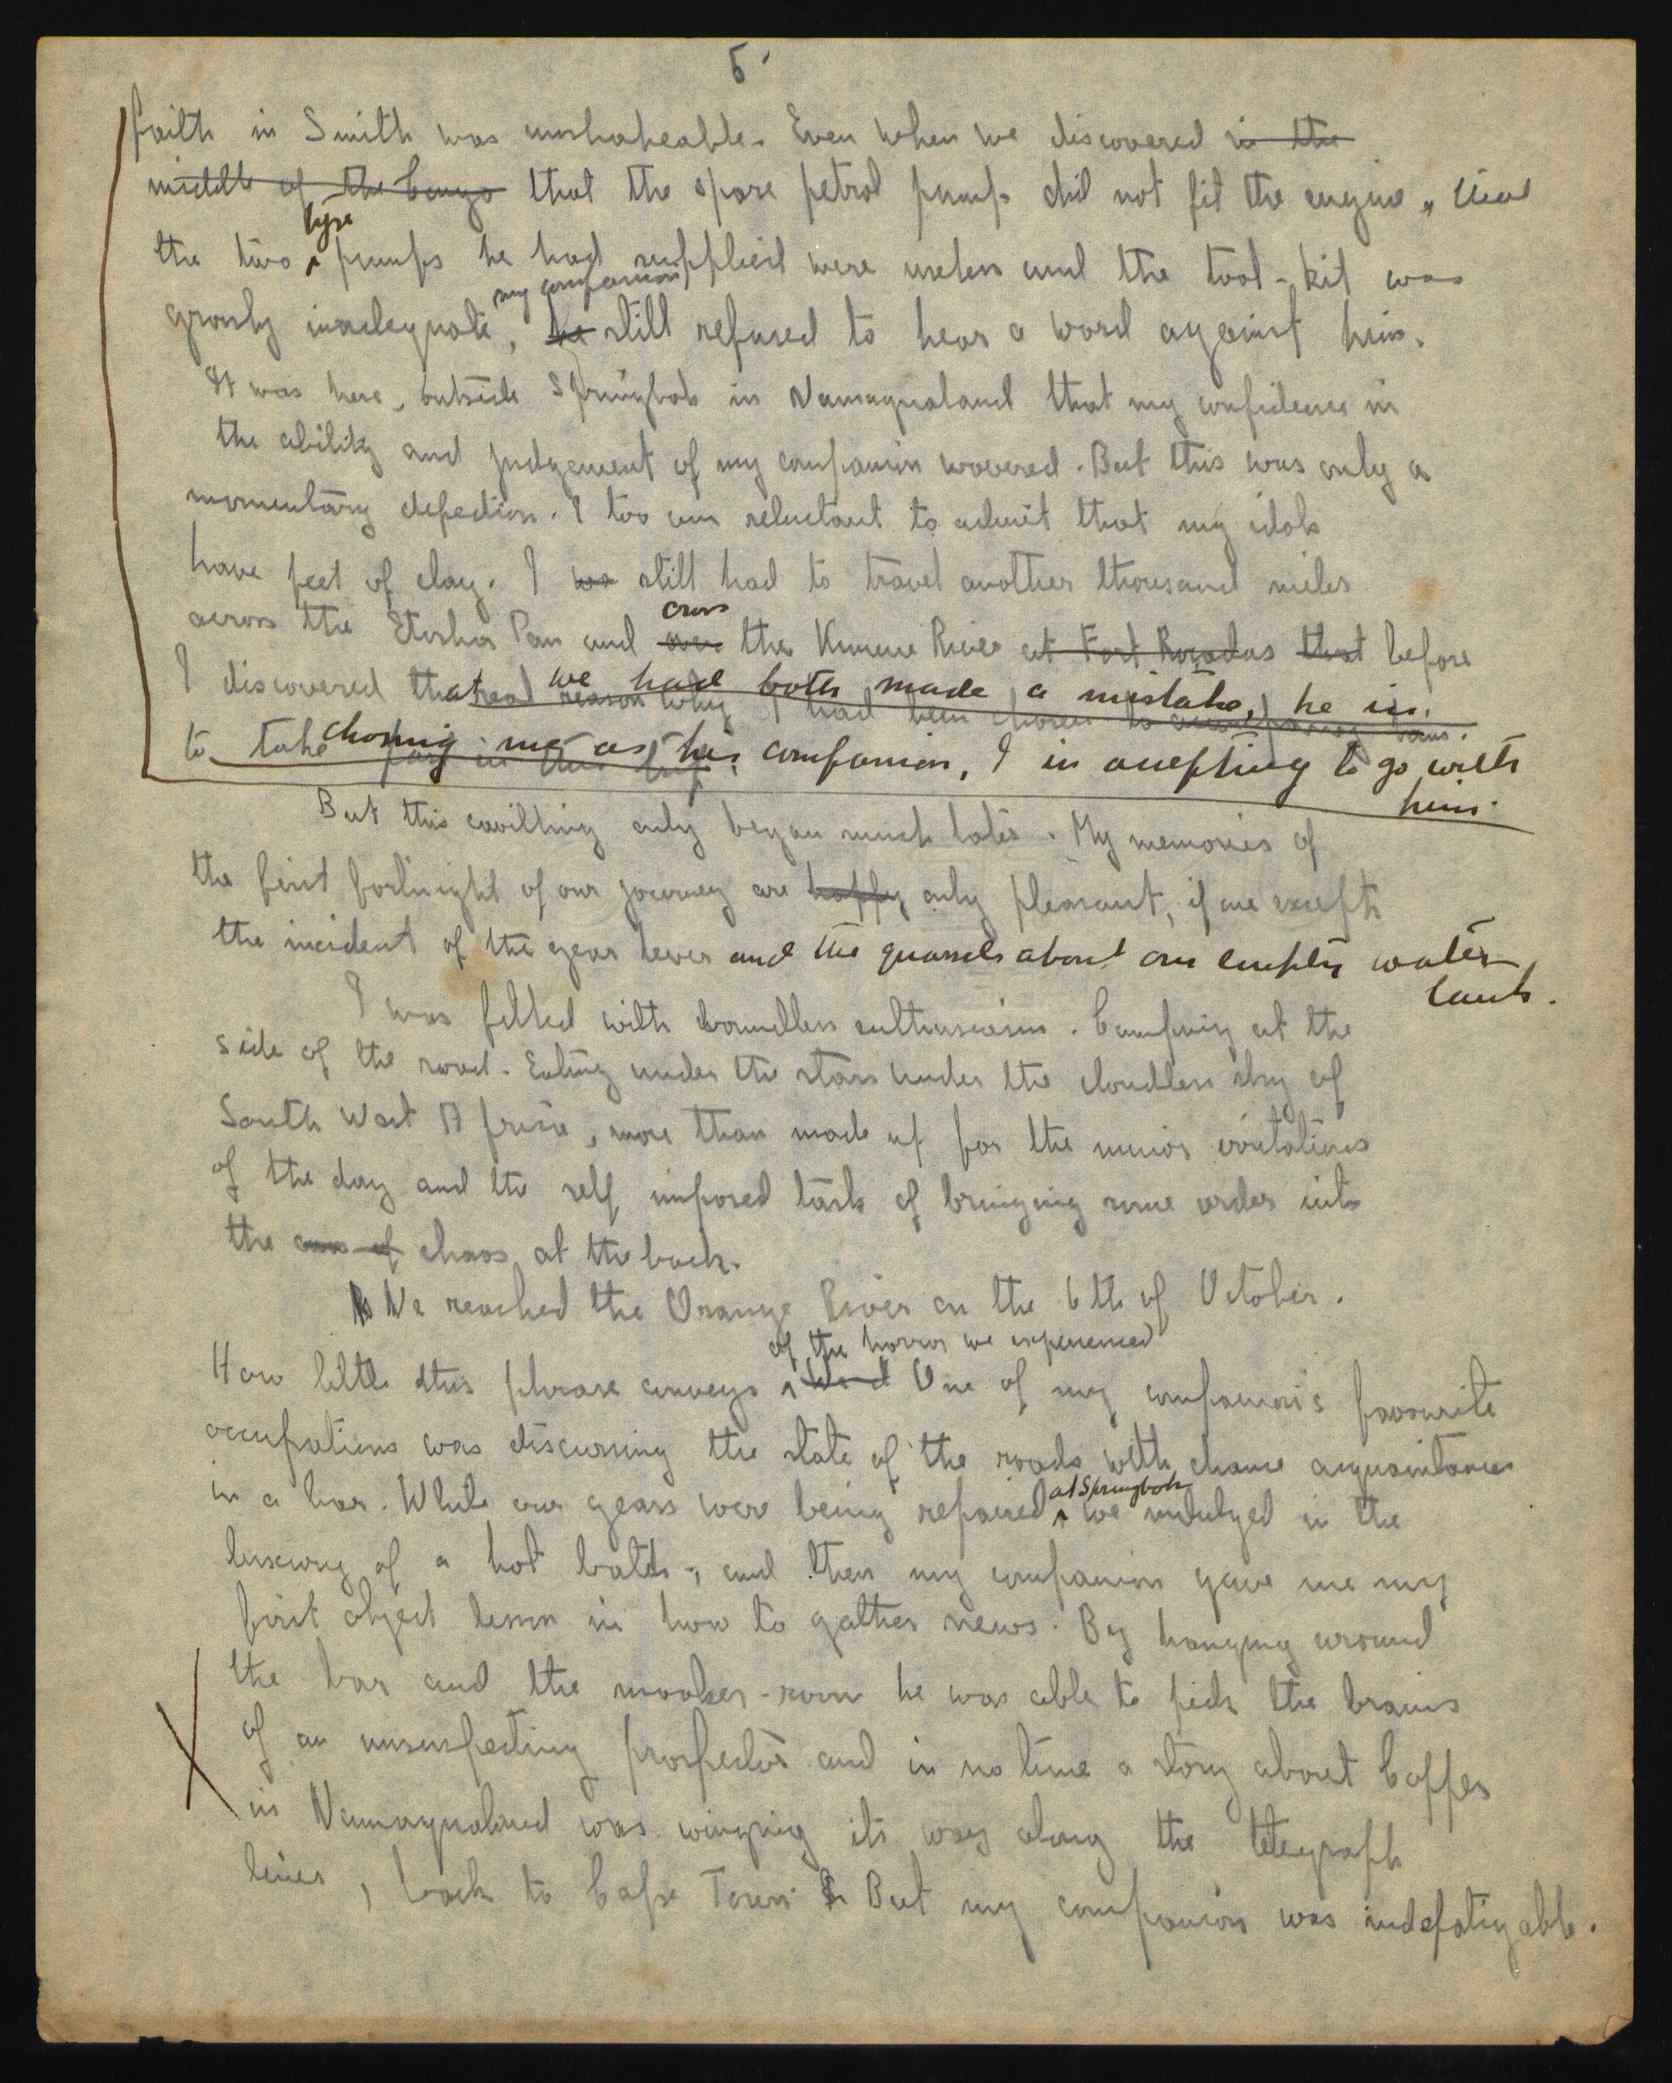 5.
faith in Smith was unshakeable. Even when we discovered in the
middle of the Congo that the spare petrol pump did not fit the engine, that
tyre
the two pumps he had supplied were useless and the tool-kit was
my companion
grossly inadequate, he still refused to hear a word against him.
It was here, outside Springbok in Namaqualand that my confidence in
the ability and judgement of my companion wavered. But this was only a
momentary defection. I too am reluctant to admit that my idols
have feet of clay. I still had to travel another thousand miles
cross
across the Etosha Pan and over the Kunene River at Fort Rocadas that before
I discovered that we had both made a mistake, he in
real reason why I had been chosen to accompany him.
choosing me as his companion, I in accepting to go with
to take part in this trip.
him.
But this cavilling only began much later. My memories of
the first fortnight of our journey are happy only pleasant, if one excepts
the incident of the gear lever and the quarrels about our empty water
tank.
I was filled with boundless enthusiasm. Camping at the
side of the road. Eating under the stars under the cloudless sky of
South West Africa, more than made up for the minor irritations
of the day and the self imposed task of bringing some order into
the chaos at the back.
We reached the Orange River on the 6th of October.
of the horrors we experienced
How little this phrase conveys One of my companion's favourite
occupations was discussing the state of the roads with chance acquaintances
at Springbok
in a bar. While our gears were being repaired we indulged in the
luxury of a hot bath, and then my companion gave me my
first object lesson in how to gather news. By hanging around
the bar and the smoker-room he was able to pick the brains
of an unsuspecting prospector and in no time a story about Copper
in Namaqualand was winging its way along the telegraph
lines, back to Cape Town. But my companion was indefatigable.